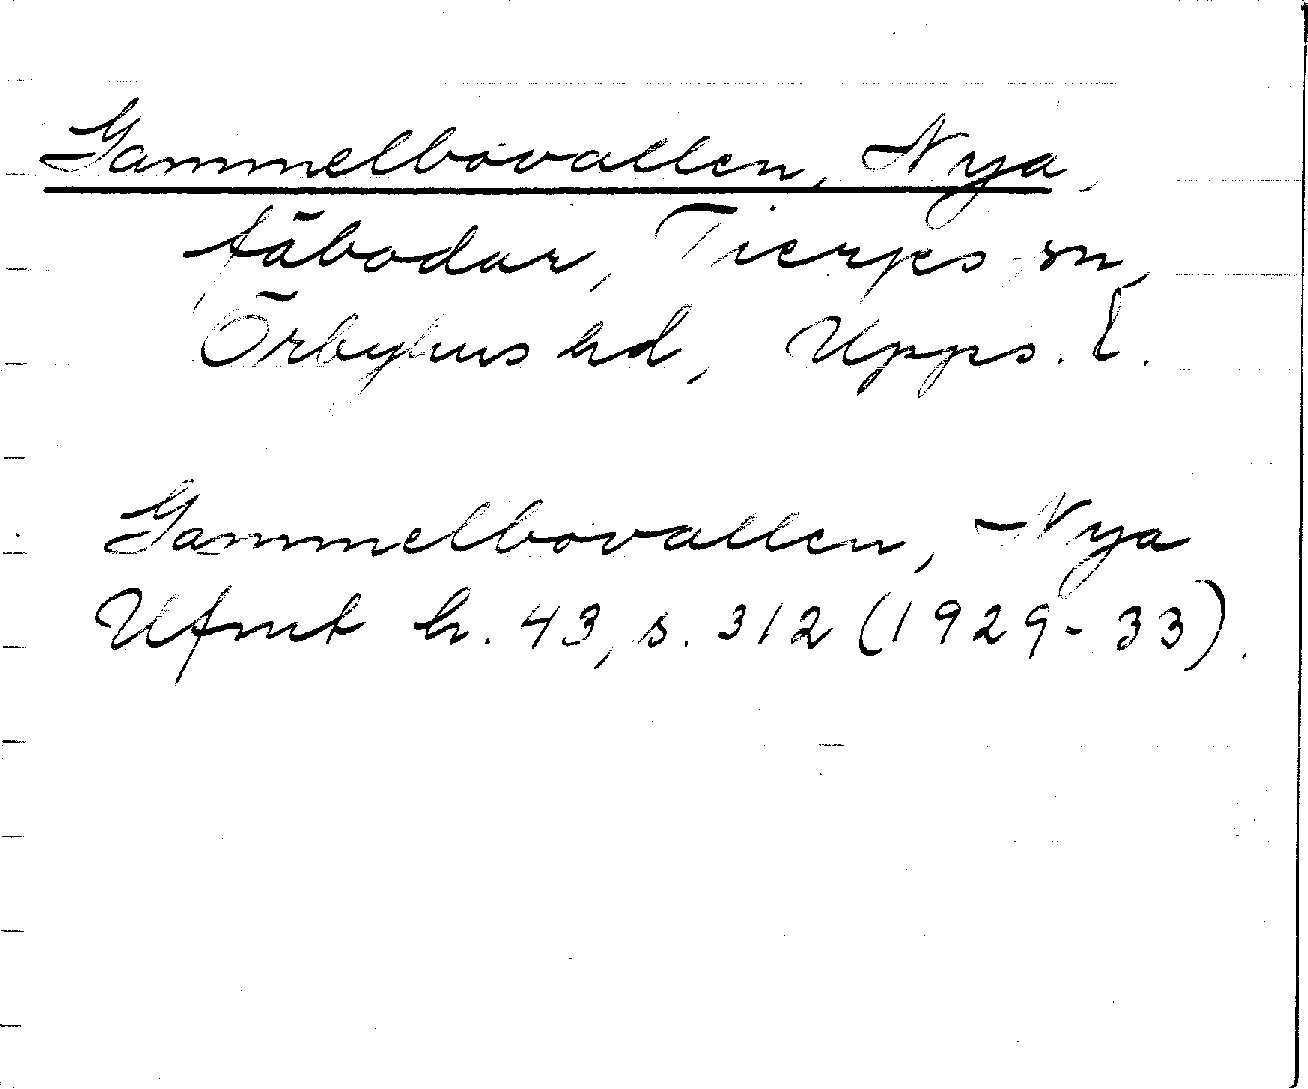 Gammelbovallen, Nya,
fäbodar, Tierps sn,
Örbyhus hd, Upps. l.
Gammelbovallen, Nya
Ufmt h. 43, s. 312 (1929-33).